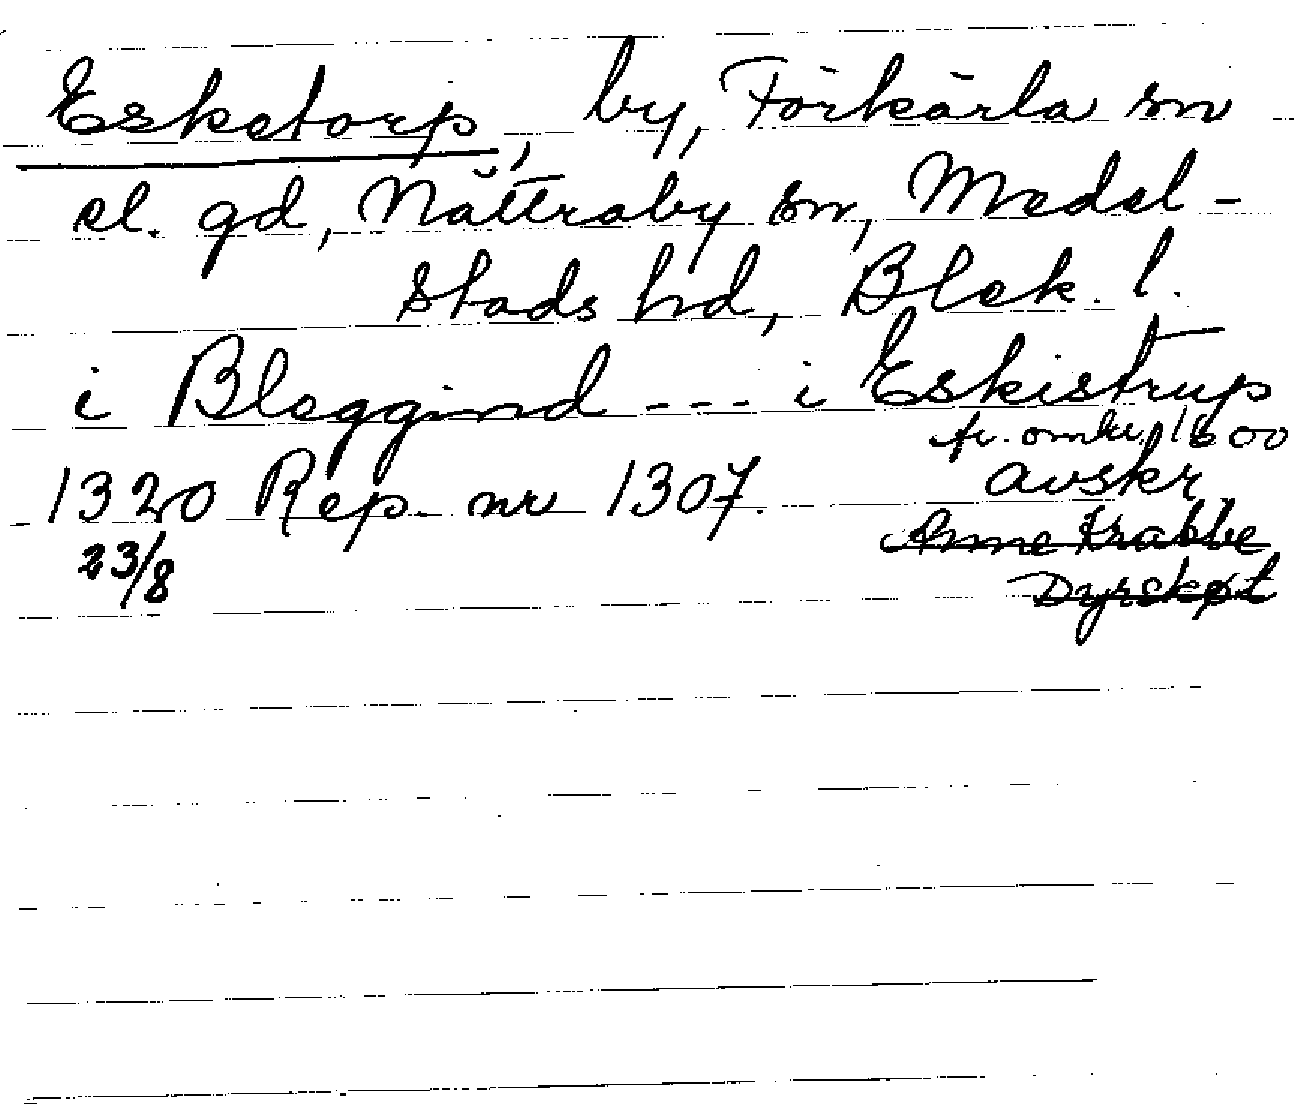 Esketorp, by, Förkärla sn
el. gd, Nättraby sn, Medel-
stads hd, Blek. l.
i Bleggind --- i Eskistrup
fr. omkr. 1600
1320 Rep. nr 1307. avskr.
23/8 Anne Krabbe
Dyrskøt